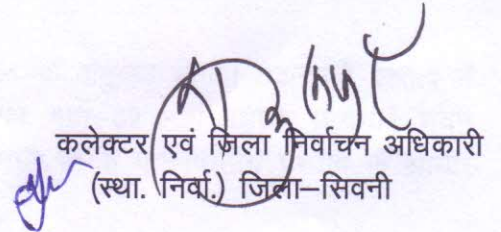 कलेक्टर एवं ज़िला निर्वाचन अधिकारी
(स्था. निर्वा.) जिला–सिवनी